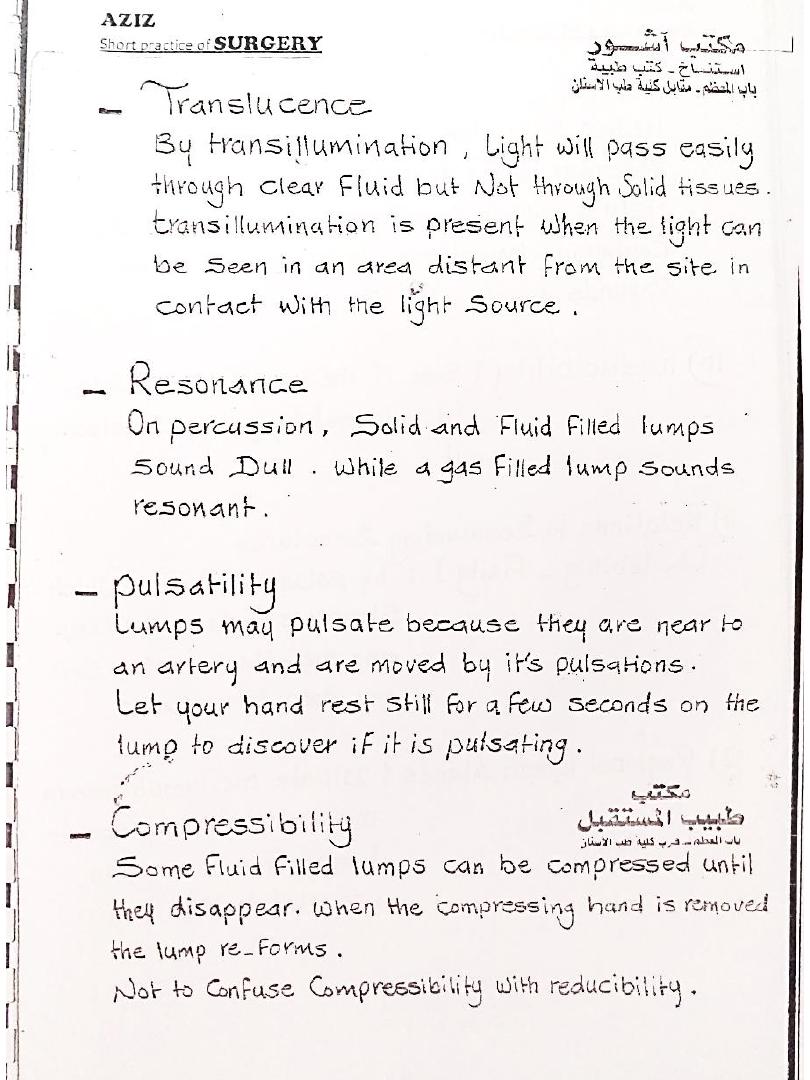 AZIZ
Short practice of SURGERY
مكتب آشور
استنساخ - كتب طبية
باب المعظم - مقابل كلية طب الاسنان
- Translucence
By transillumination, Light will pass easily
through clear Fluid but Not through Solid tissues.
transillumination is present when the light can
be Seen in an area distant from the site in
contact with the light Source.
- Resonance
On percussion, Solid and Fluid Filled lumps
Sound Dull. While a gas Filled lump sounds
resonant.
- pulsatility
Lumps may pulsate because they are near to
an artery and are moved by it's pulsations.
Let your hand rest still for a few seconds on the
lump to discover if it is pulsating.
مكتب
طبيب المستقبل
باب المعظم - قرب كلية طب الاسنان
- Compressibility
Some Fluid Filled lumps can be compressed until
they disappear. when the compressing hand is removed
the lump re-forms.
Not to Confuse Compressibility with reducibility.